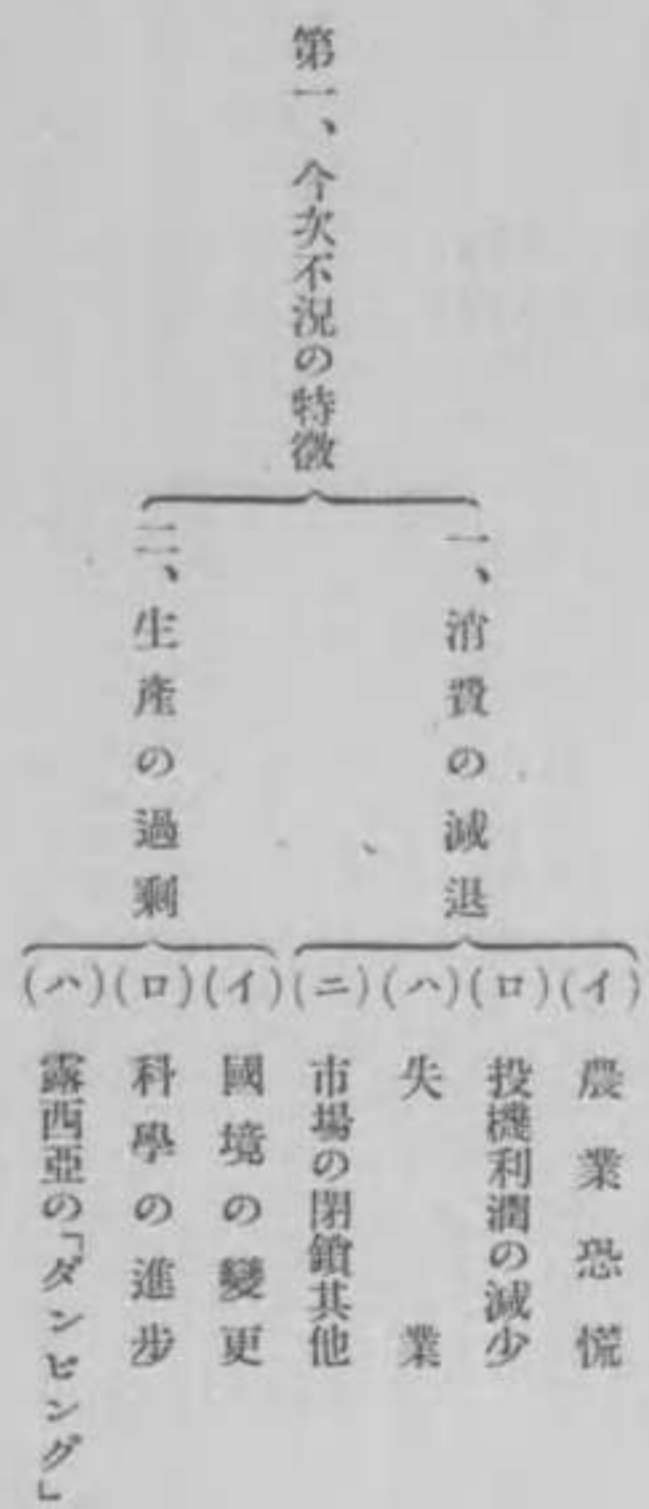 第一、今次不況の特徴
一、消費の減退
(イ)農業恐慌
(ロ)投機利潤の減少
(ハ)失業
(ニ)市場の閉鎖其他
二、生產の過剩
(イ)國境の變更
(ロ)科學の進步
(ハ)露西亞の「ダンピング」